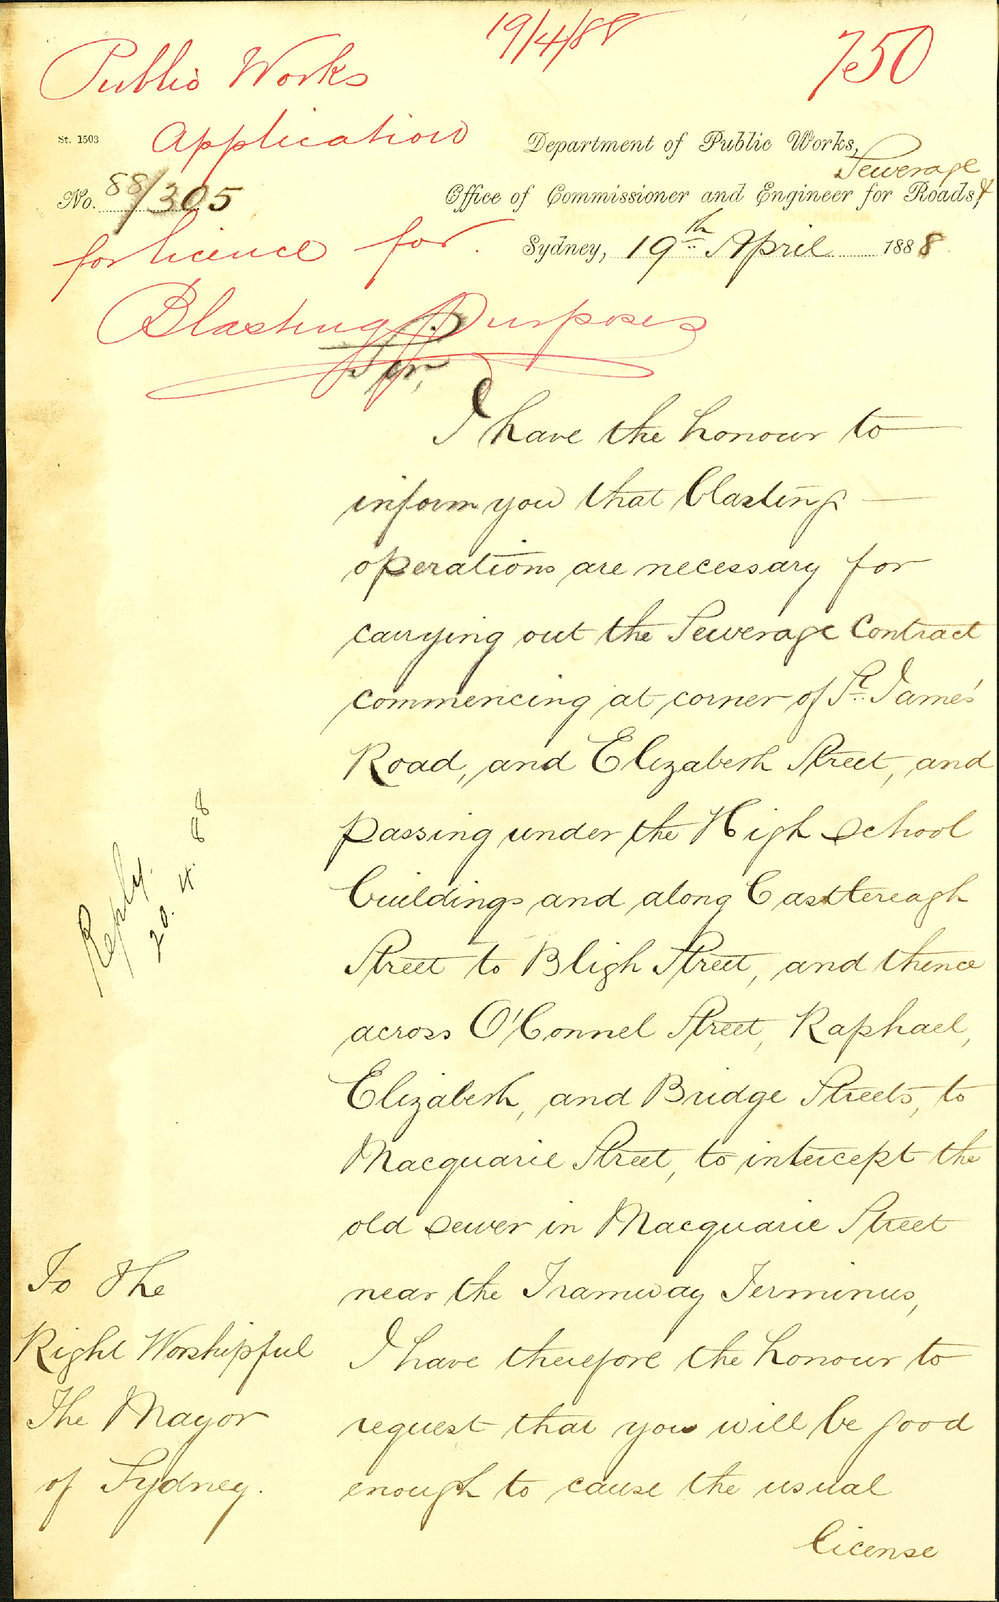 19/4/88
750
Public Works
Application
for licence for
Blasting Purposes
St. 1503
Department of Public Works,
Sewerage
No. 88/305
Office of Commissioner and Engineer for Roads &
Sydney, 19th April 1888
Sir,
I have the honour to
inform you that blasting
operations are necessary for
carrying out the Sewerage Contract
commencing at corner of St. James'
Road, and Elizabeth Street, and
passing under the High School
buildings and along Castlereagh
Street to Bligh Street, and thence
across O'Connel Street, Raphael,
Elizabeth, and Bridge Streets, to
Macquarie Street, to intercept the
old sewer in Macquarie Street
near the Tramway Terminus,
I have therefore the honour to
request that you will be good
enough to cause the usual
license
Reply.
20.4.88
To The
Right Worshipful
The Mayor
of Sydney.